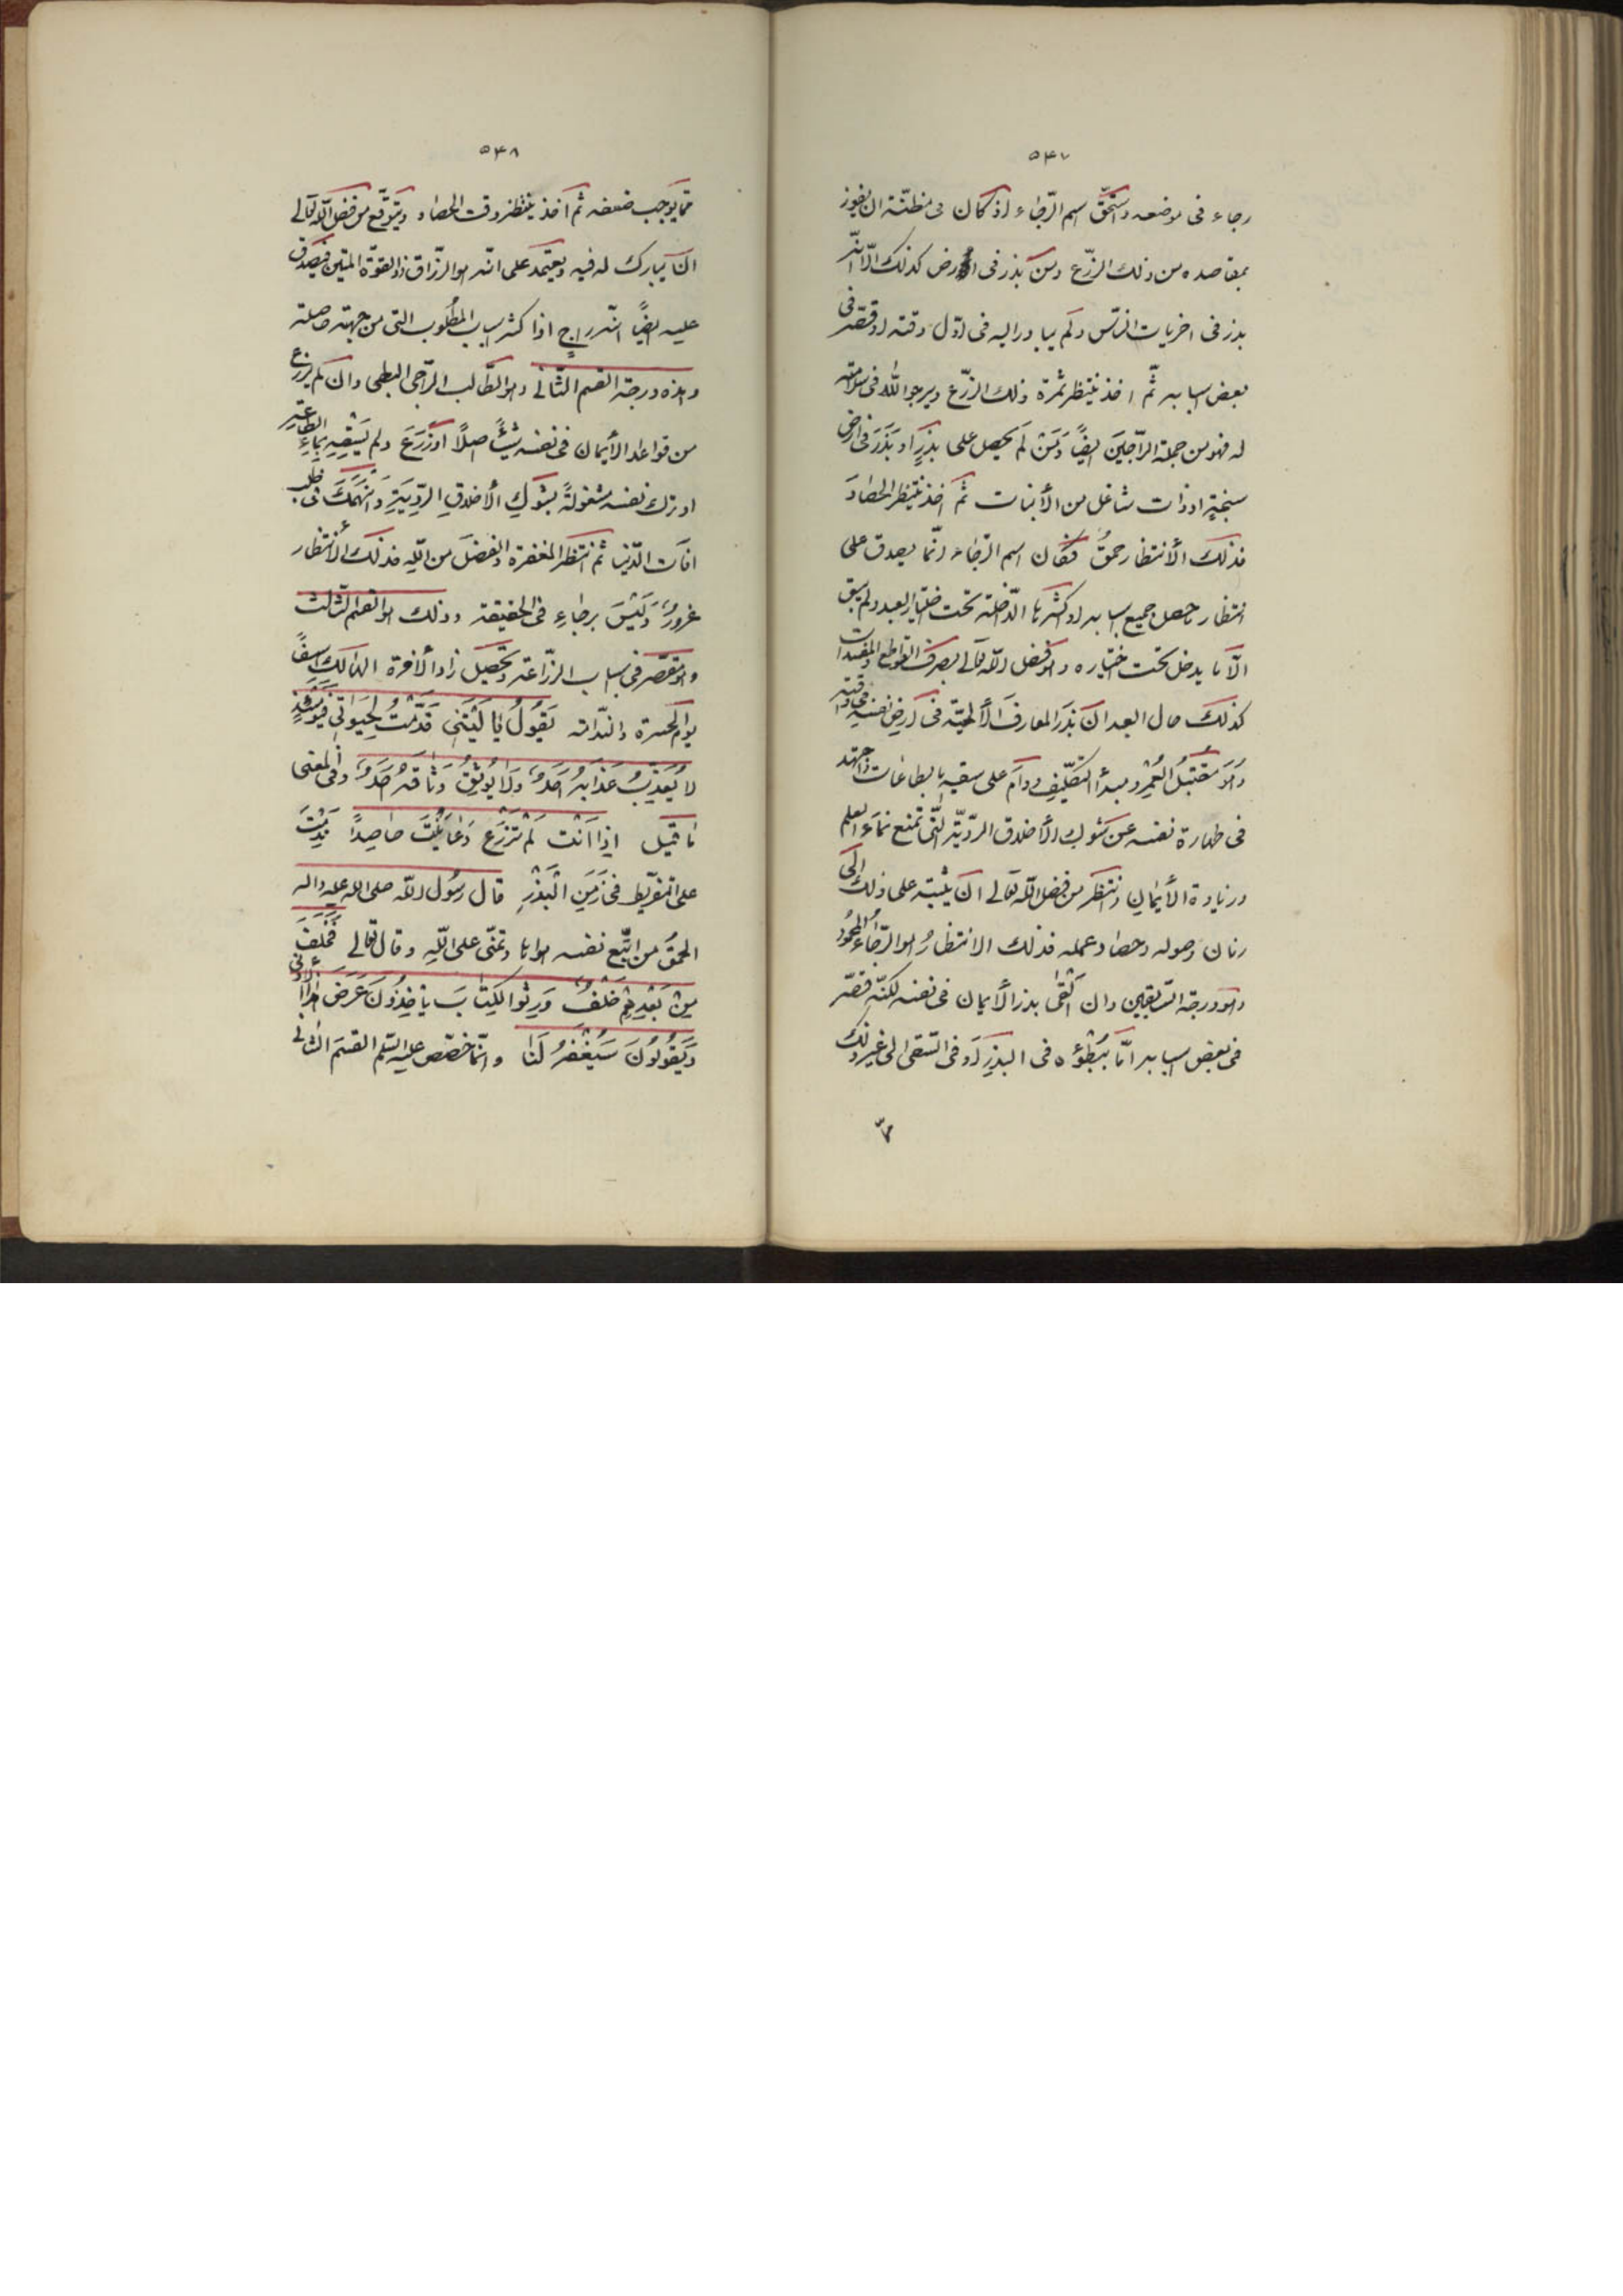 ٥۴٧
رجاء فى موضعه واستحقّ اسم الرّجاء اذ كان فى مظنّة ان يفوز
بمقاصده من ذلك الزّرع ومن بذر فى ارض كذلك الّا انّه
بذر فى اخريات النّاس ولم يبادر اليه فى اوّل وقته او قصّر فى
بعض اسبابه ثمّ اخذ ينتظر ثمرة ذلك الزّرع ويرجو اللّه فى سلامته
له فهو من جملة الرّاجين ايضًا ومن لم يحصل على بذرٍ او بذر فى ارض
سبخةٍ او ذات شاغل من الأنبات ثمّ اخذ ينتظر الحصاد
فذلك الأنتظار حمقٌ فكان اسم الرّجاء انّما يصدق على
انتظار ما حصل جميع اسبابه او اكثرها الدّاخلة تحت اختيار العبد ولم يبق
الّا ما يدخل تحت اختياره وهو فضل اللّه تعالى بصرف القواطع والمفسدات
كذلك حال العبد ان بذر المعارف الألهيّة فى ارض نفسه فى وقته
وهو مقتبل العمر ومبدأ التّكليف ودام على سقيه بالطاعات واجتهد
فى طهارة نفسه عن شوك الأخلاق الرديّة الّتى تمنع نماء العلم
وزيادة الأيمان وانتظر من فضل اللّه تعالى ان يثبته على ذلك الى
زمان وصوله وحصاد عمله فذلك الانتظار هو الرّجاء المحمود
وهو درجة السّابقين وان القى بذر الأيمان فى نفسه لكنّه قصّر
فى بعض اسبابه امّا ببطؤه فى البذر او فى السّقى الى غير ذلك
٥۴٨
ممّا يوجب ضعفه ثمّ اخذ ينتظر وقت الحصاد ويتوقّع من فضل اللّه تعالى
ان يبارك له فيه ويعتمد على انّه هو الرزّاق ذو القوّة المتين فيصدق
عليه ايضًا انّه راجٍ اذا كثر اسباب المطلوب التى من جهته حاصلة
وهذه درجة القسم الثّانى وهو الطّالب الرّاجى البطى وان لم يزرع
من قواعد الأيمان فى نفسه شيئًا اصلًا او زرع ولم يسقه بماء الطّاعة
او ترك نفسه مشغولةً بشوك الأخلاق الرديّة وانهمك فى طلب
افات الدّنيا ثم انتظر المغفرة والفضل من اللّه فذلك الأنتظار
غرورٌ وليس برجاء فى الحقيقة وذلك هو القسم الثّالث
وهو مقصّر فى اسباب الزّراعة وتحصيل زاد الأخرة الهالك اسفًا
يوم الحسرة والنّدامة يَقُولُ يٰا لَيْتَنِى قَدَّمْتُ لِحَيٰوتِى فَيَوْمَئِذٍ
لٰا يُعَذِّبُ عَذٰابَهُ اَحَدٌ وَلٰا يُوثِقُ وَثٰاقَهُ اَحَدٌ وفى المعنى
ما قيل اِذا اَنْتَ لَمْ تَزْرَعْ وَعٰايَنْتَ حٰاصِدًا نَدِمْتَ
على التّفريط فى زَمَنِ الْبَذْرِ قال رسول اللّه صلى اللّه عليه واله
الحمق من اتّبع نفسه هواها وتمنّى على اللّه وقال تعالى فَخَلَفَ
مِنْ بَعْدِهِمْ خَلْفٌ وَرِثُوا الْكِتٰابَ يَأْخُذُونَ عَرَضَ هٰذَا الْاَدْنٰى
وَيَقُولُونَ سَيُغْفَرُ لَنٰا وانّما خصّص عليه السّلم القسم الثّانى